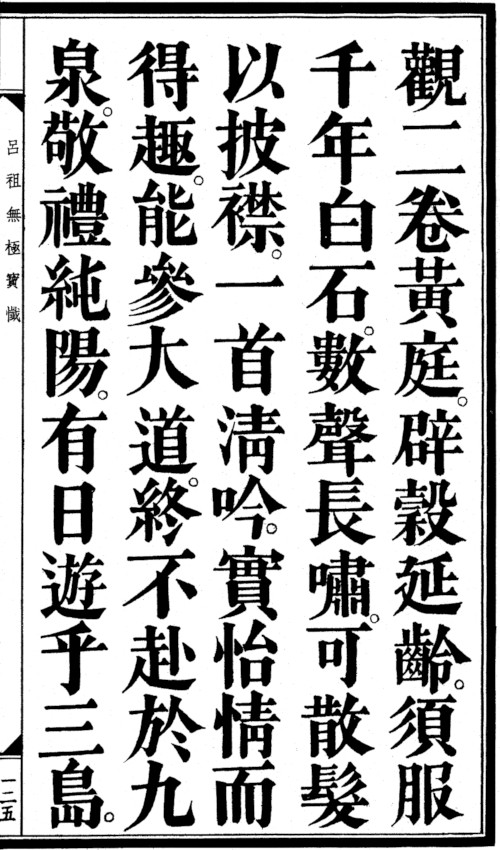 觀二卷黃庭。辟穀延齡。須服
千年白石。數聲長嘯。可散髮
以披襟。一首淸吟。實怡情而
得趣。能參大道。終不赴於九
泉。敬禮純陽。有日遊乎三島。
呂祖無極寶懺
一二五